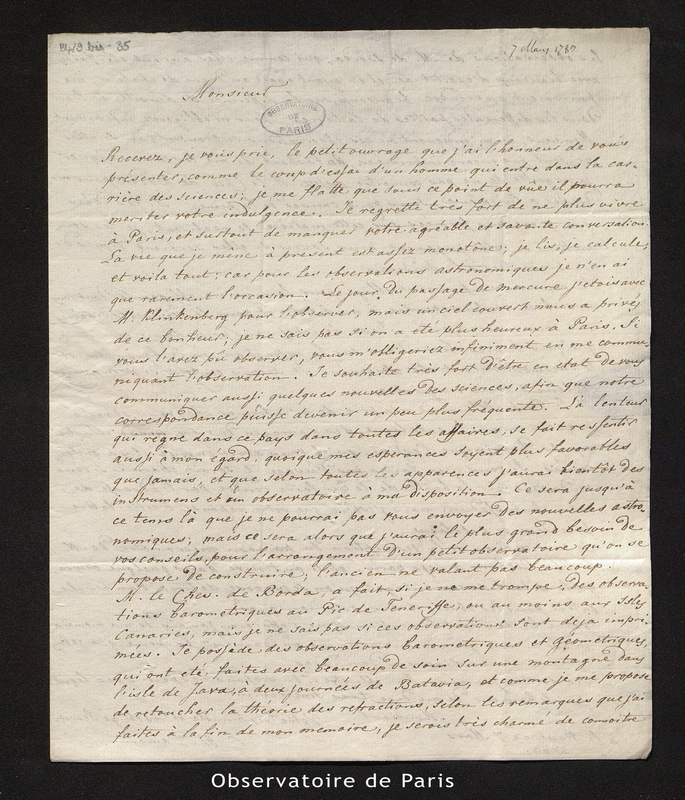 7 Mars 1787
Monsieur
OBSERVATOIRE
DE
PARIS
Recevez, je vous prie, le petit ouvrage que j'ai l'honneur de vous
présenter, comme le coup d'essai d'un homme qui entre dans la car-
rière des sciences; je me flatte que sous ce point de vüe il pourra
meriter votre indulgence. Je regrette très fort de ne plus vivre
à Paris, et surtout de manquer votre agréable et savante conversation.
La vie que je mène à present est assez monotone; je lis, je calcule,
et voila tout; car pour les observations astronomiques je n'en ai
que rarement l'occasion. Le jour du passage de mercure j'etois avec
M. Klinkenberg pour l'observer, mais un ciel couvert nous a privé
de ce bonheur; je ne sais pas si on a eté plus heureux à Paris. Si
vous l'avez pû observer, vous m'obligeriez infiniment en me commu-
niquant l'observation. Je souhaite très fort d'être en etat de vous
communiquer aussi quelques nouvelles des sciences, afin que notre
correspondance puisse devenir un peu plus fréquente. La lenteur
qui règne dans ce pays dans toutes les affaires, se fait ressentir
aussi à mon égard, quoique mes esperances soyent plus favorables
que jamais, et que selon toutes les apparences j'aurai bientôt des
instrumens et un observatoire à ma disposition. Ce sera jusqu'à
ce tems là que je ne pourrai pas vous envoyer des nouvelles astro-
nomiques; mais ce sera alors que j'aurai le plus grand besoin de
vos conseils, pour l'arrangement d'un petit observatoire qu'on se
propose de construire, l'ancien ne valant pas beaucoup.
M. le Chev. de Borda, a fait, si je ne me trompe, des observa-
tions barometriques au Pic de Teneriffe, ou au moins aux Isles
Canaries, mais je ne sais pas si ces observations sont deja impri-
mées. Je possède des observations barometriques et géometriques,
qui ont eté faites avec beaucoup de soin sur une montagne dans
l'isle de Java, à deux journées de Batavia, et comme je me propose
de retoucher la théorie des refractions, selon les remarques que j'ai
faites à la fin de mon memoire, je serois très charmé de connoitre
Observatoire de Paris